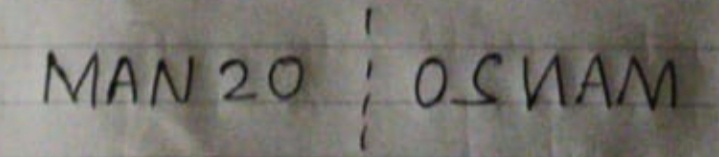 MAN 20 ¦ 0SИAM